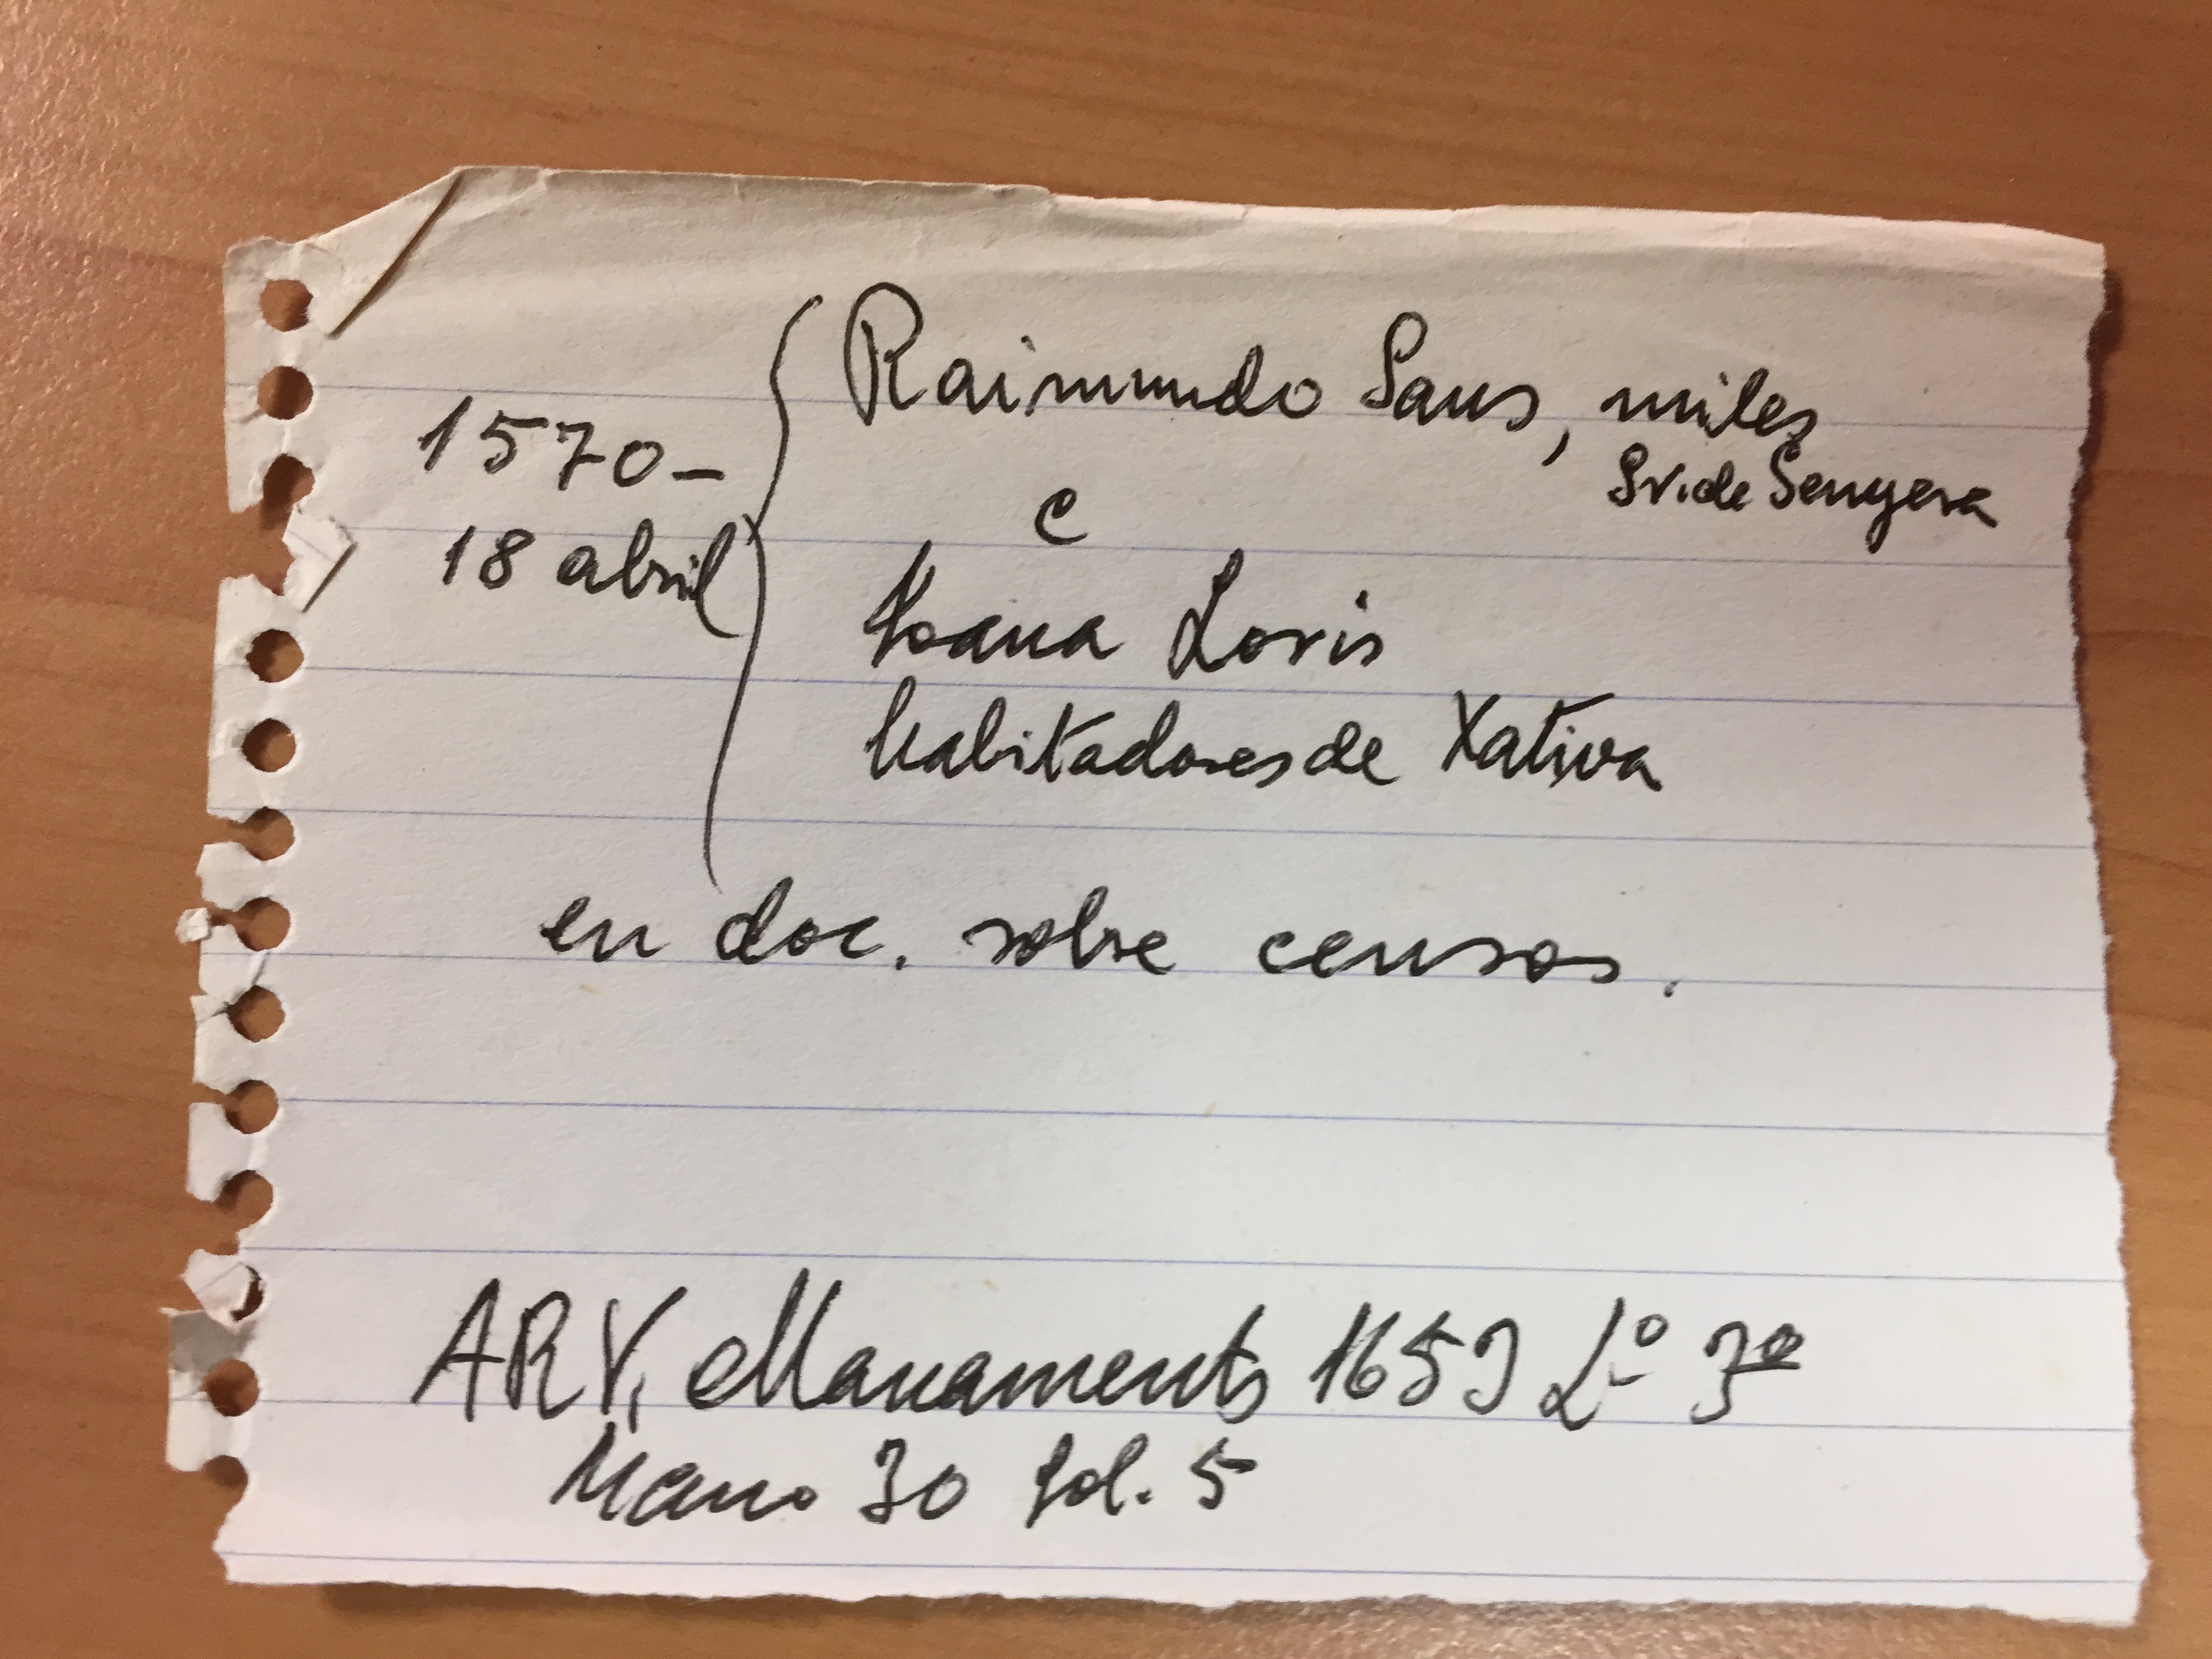 1570-
18 abril
Raimundo Sans, miles
Sr. de Senyera
e
Ioana Loris
habitadores de Xativa
en doc. sobre censos.
ARV, Manaments 1653 Lº 3º
Mano 30 fol. 5